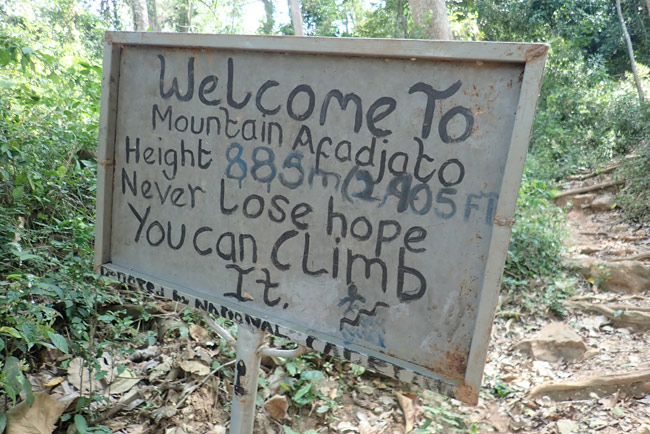 Welcome To
Mountain Afadjato
Height 885m (2,905 FT
Never Lose hope
You can Climb
It.
Donated by NATIONAL